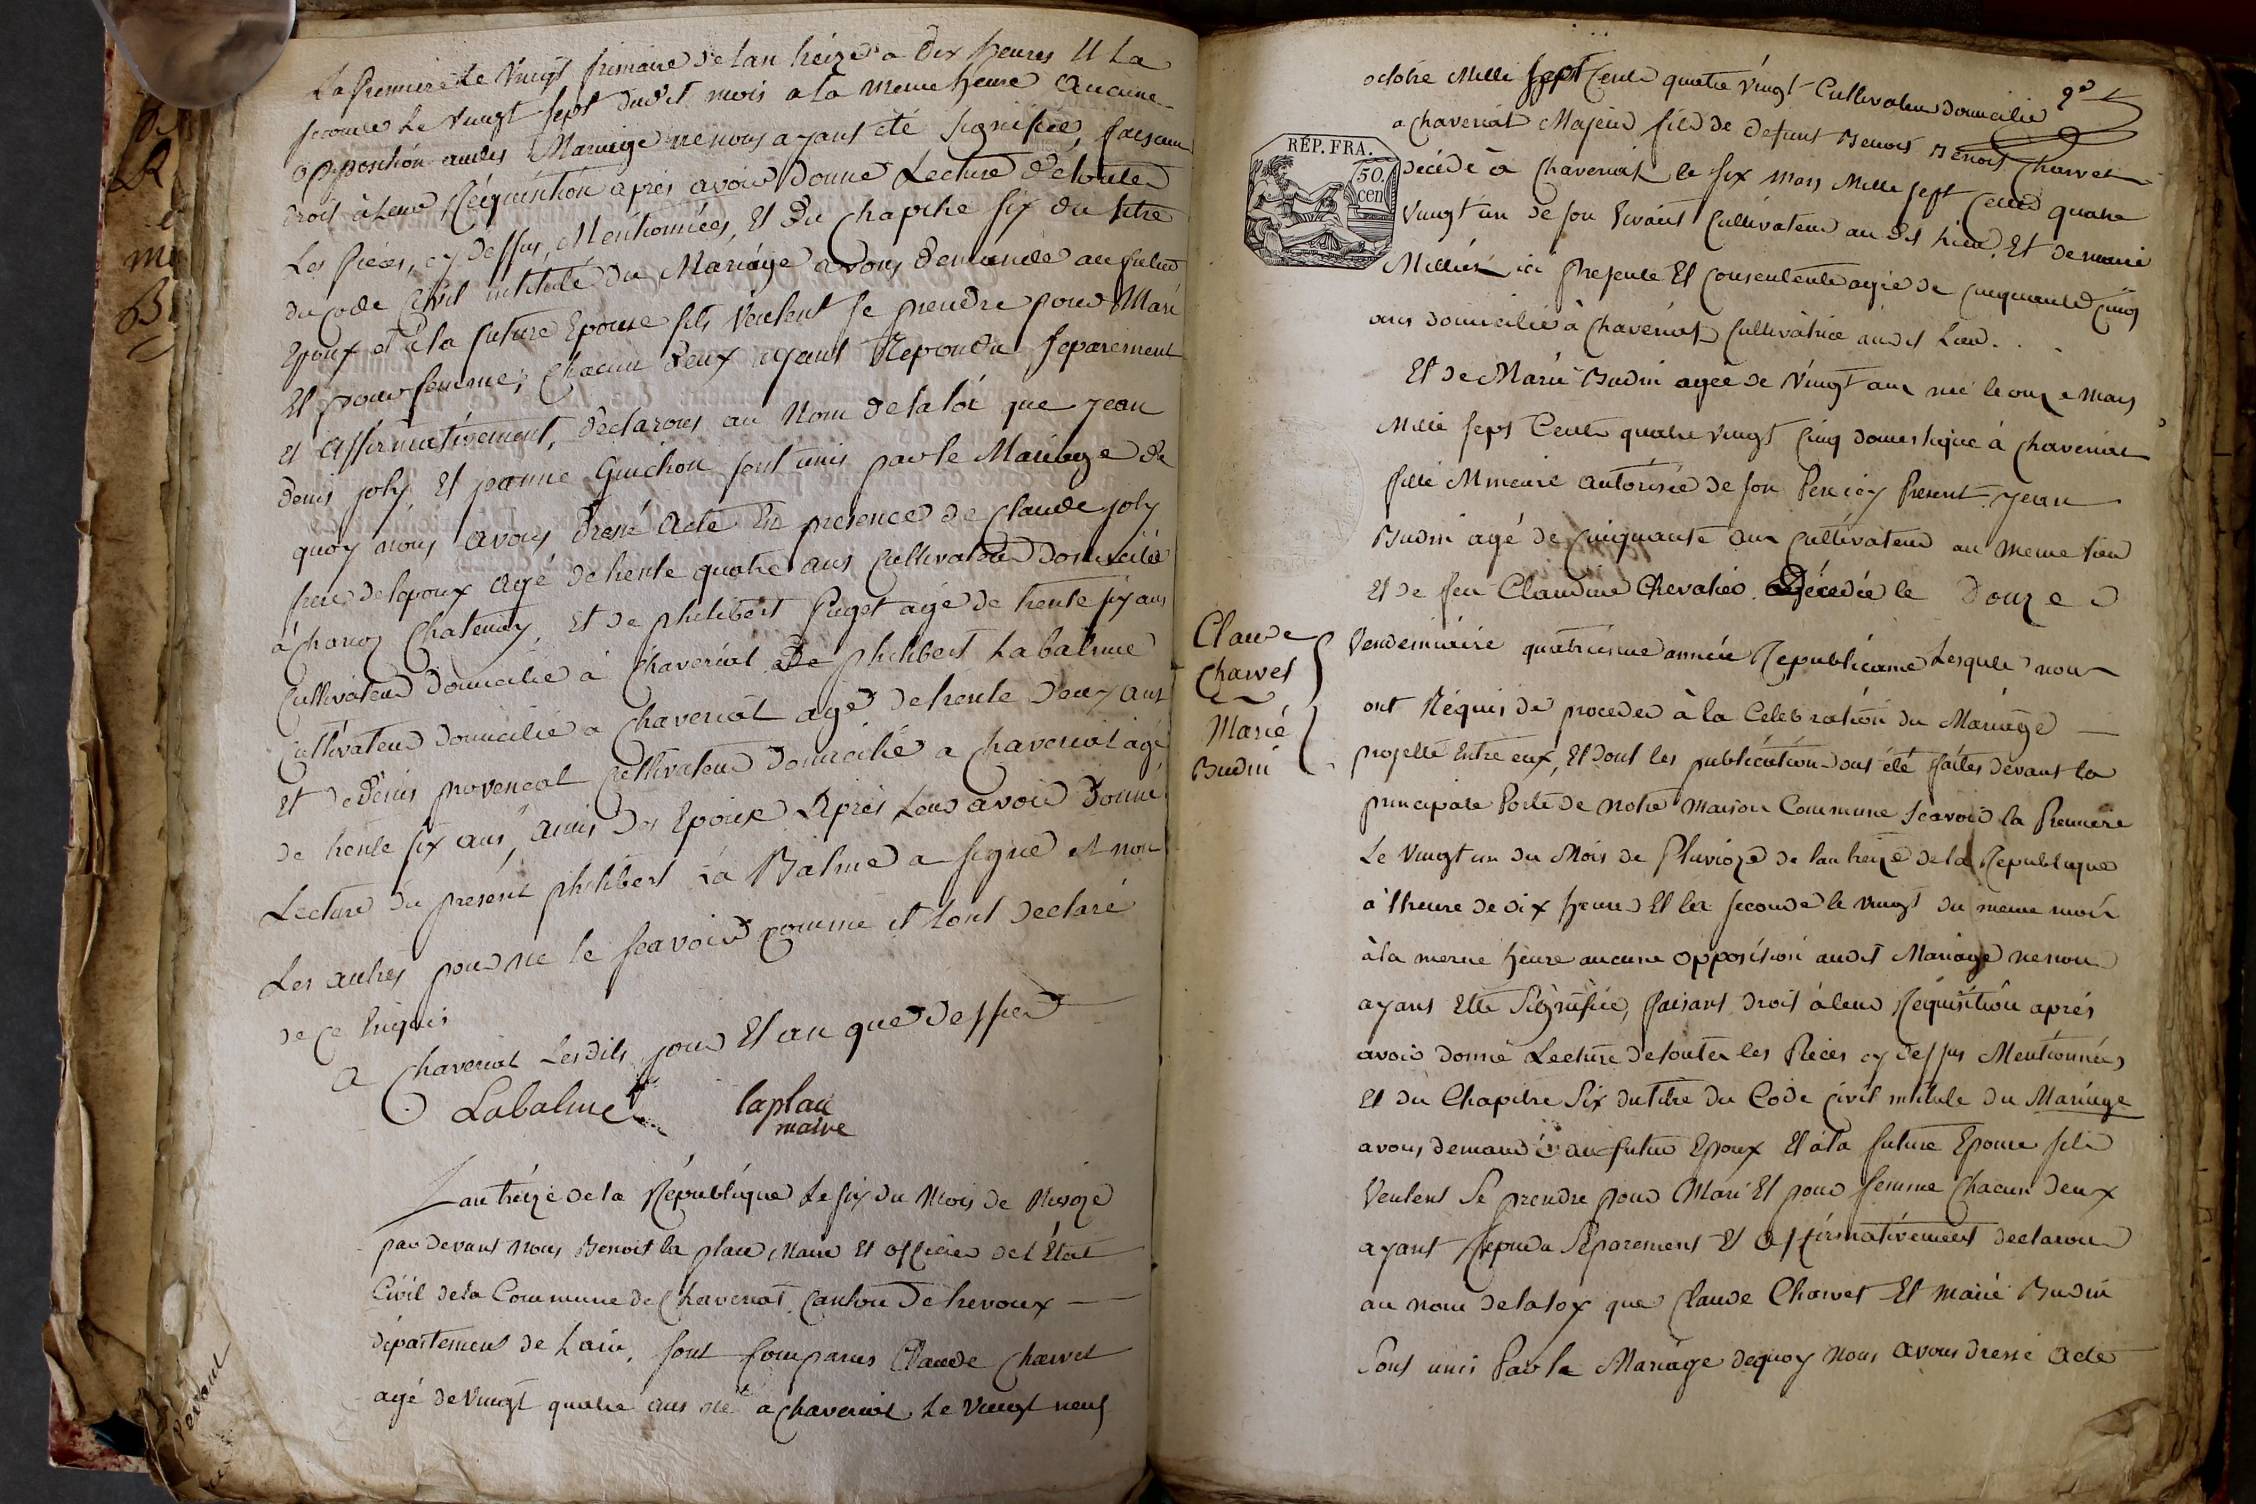 La Premiere Le Vingt frimaire de lan treize a Dix heures Et La
seconde Le Vingt sept dudit mois a la meme heure aucune
opposition audit Mariage ne nous ayant été signifiée, faisant
droit à leur Réquisition apres avoir Donné Lecture de toutes
Les pieces, cy dessus, Mentionnées, Et Du Chapitre six du titre
du Code Civil intitulé du Mariage avons demandé au futur
Epoux et à la future Epouse sils Veulent se prendre pour Mari
Et pour femme; Chacun deux ayant Repondu separement
et affirmativement, declarons au Nom de la loi que jean
denis joly Et jeanne Guichon sont unis par le Mariage de
quoy nous avons Dressé acte En presence de Claude joly
frere de lepoux agé de trente quatre ans Cultivateur Domicilié
à Chanoz Chatenay, Et de philibert Puget agé de trente six ans
Cultivateur Domicilié à Chaveriat De philibert Labalme
Cultivateur Domicilié a Chaveriat agé de trente deux ans
Et de Denis provencal Cultivateur Domicilié a Chaveriat agé
de trente six ans, amis des Epoux Après Leur avoir Donné
Lecture du present philibert La Balme a signé et non
Les autres pour ne le scavoir comme il lont declaré
de ce Enquis
a Chaveriat Lesdits jour Et an que dessus
Labalme laplace
maire
Lan treize de la République Le six du Mois de Nivoze
par devant nous Benoit la place Maire Et officier de l Etat
Civil de la Commune de Chaveriat Canton De trevoux
département de Lain, sont Comparus Claude Charvet
agé de Vingt quatre ans né a Chaveriat Le Vingt neuf
octobre Mille sept Cent quatre Vingt Cultivateur domicilié
a Chaveriat Majeur fils de defunt Benoit Benoit Charvet
RÉP. FRA.
50
cen
décédé à Chaveriat le six Mars Mille sept Cent quatre
Vingt un de son Vivant Cultivateur au dit Lieu, Et de marie
Milliet ici presente Et Consentente agée de Cinquante Cinq
ans domicilié à Chaveriat Cultivatrice audit Lieu.
Et de Marie Budin agée de Vingt ans née le onze Mars
Mille sept Cent quatre vingt Cinq domestique à Chaveriat
fille Mineure autorisée de son Pere icy Present. jean
Budin agé de Cinquante ans Cultivateur au meme lieu
Et de feu Claudine Chevalier Décédée le Douze
Claude
Charvet
Marie
Budin
Vendemiaire quatrieme année Republicaine Lesquels nous
ont Réquis de proceder à la Celebration du Mariage
projetté Entre eux, Et dont les publications ont été faites devant la
principale Porte de notre Maison Commune scavoir la Premiere
Le Vingt un du Mois de Pluvioze de lan treize de la Republique
à lheure de dix heures Et la seconde le vingt du meme mois
à la meme heure aucune opposition audit Mariage ne nous
ayant Etté Signifiée, faisant droit à leur Réquisition après
avoir donné Lecture de toutes les Pieces cy dessus Mentionnées
Et du Chapitre Six du titre du Code Civil intitulé du Mariage
avons demandé au futur Epoux Et à la future Epouse sils
Veulent Se prendre pour Mari Et pour femme Chacun deux
ayant Repondu Séparement Et affirmativement declarons
au nom de la loy que Claude Charvet Et Marie Budin
Sont unis Par le Mariage dequoy nous avons dressé acte